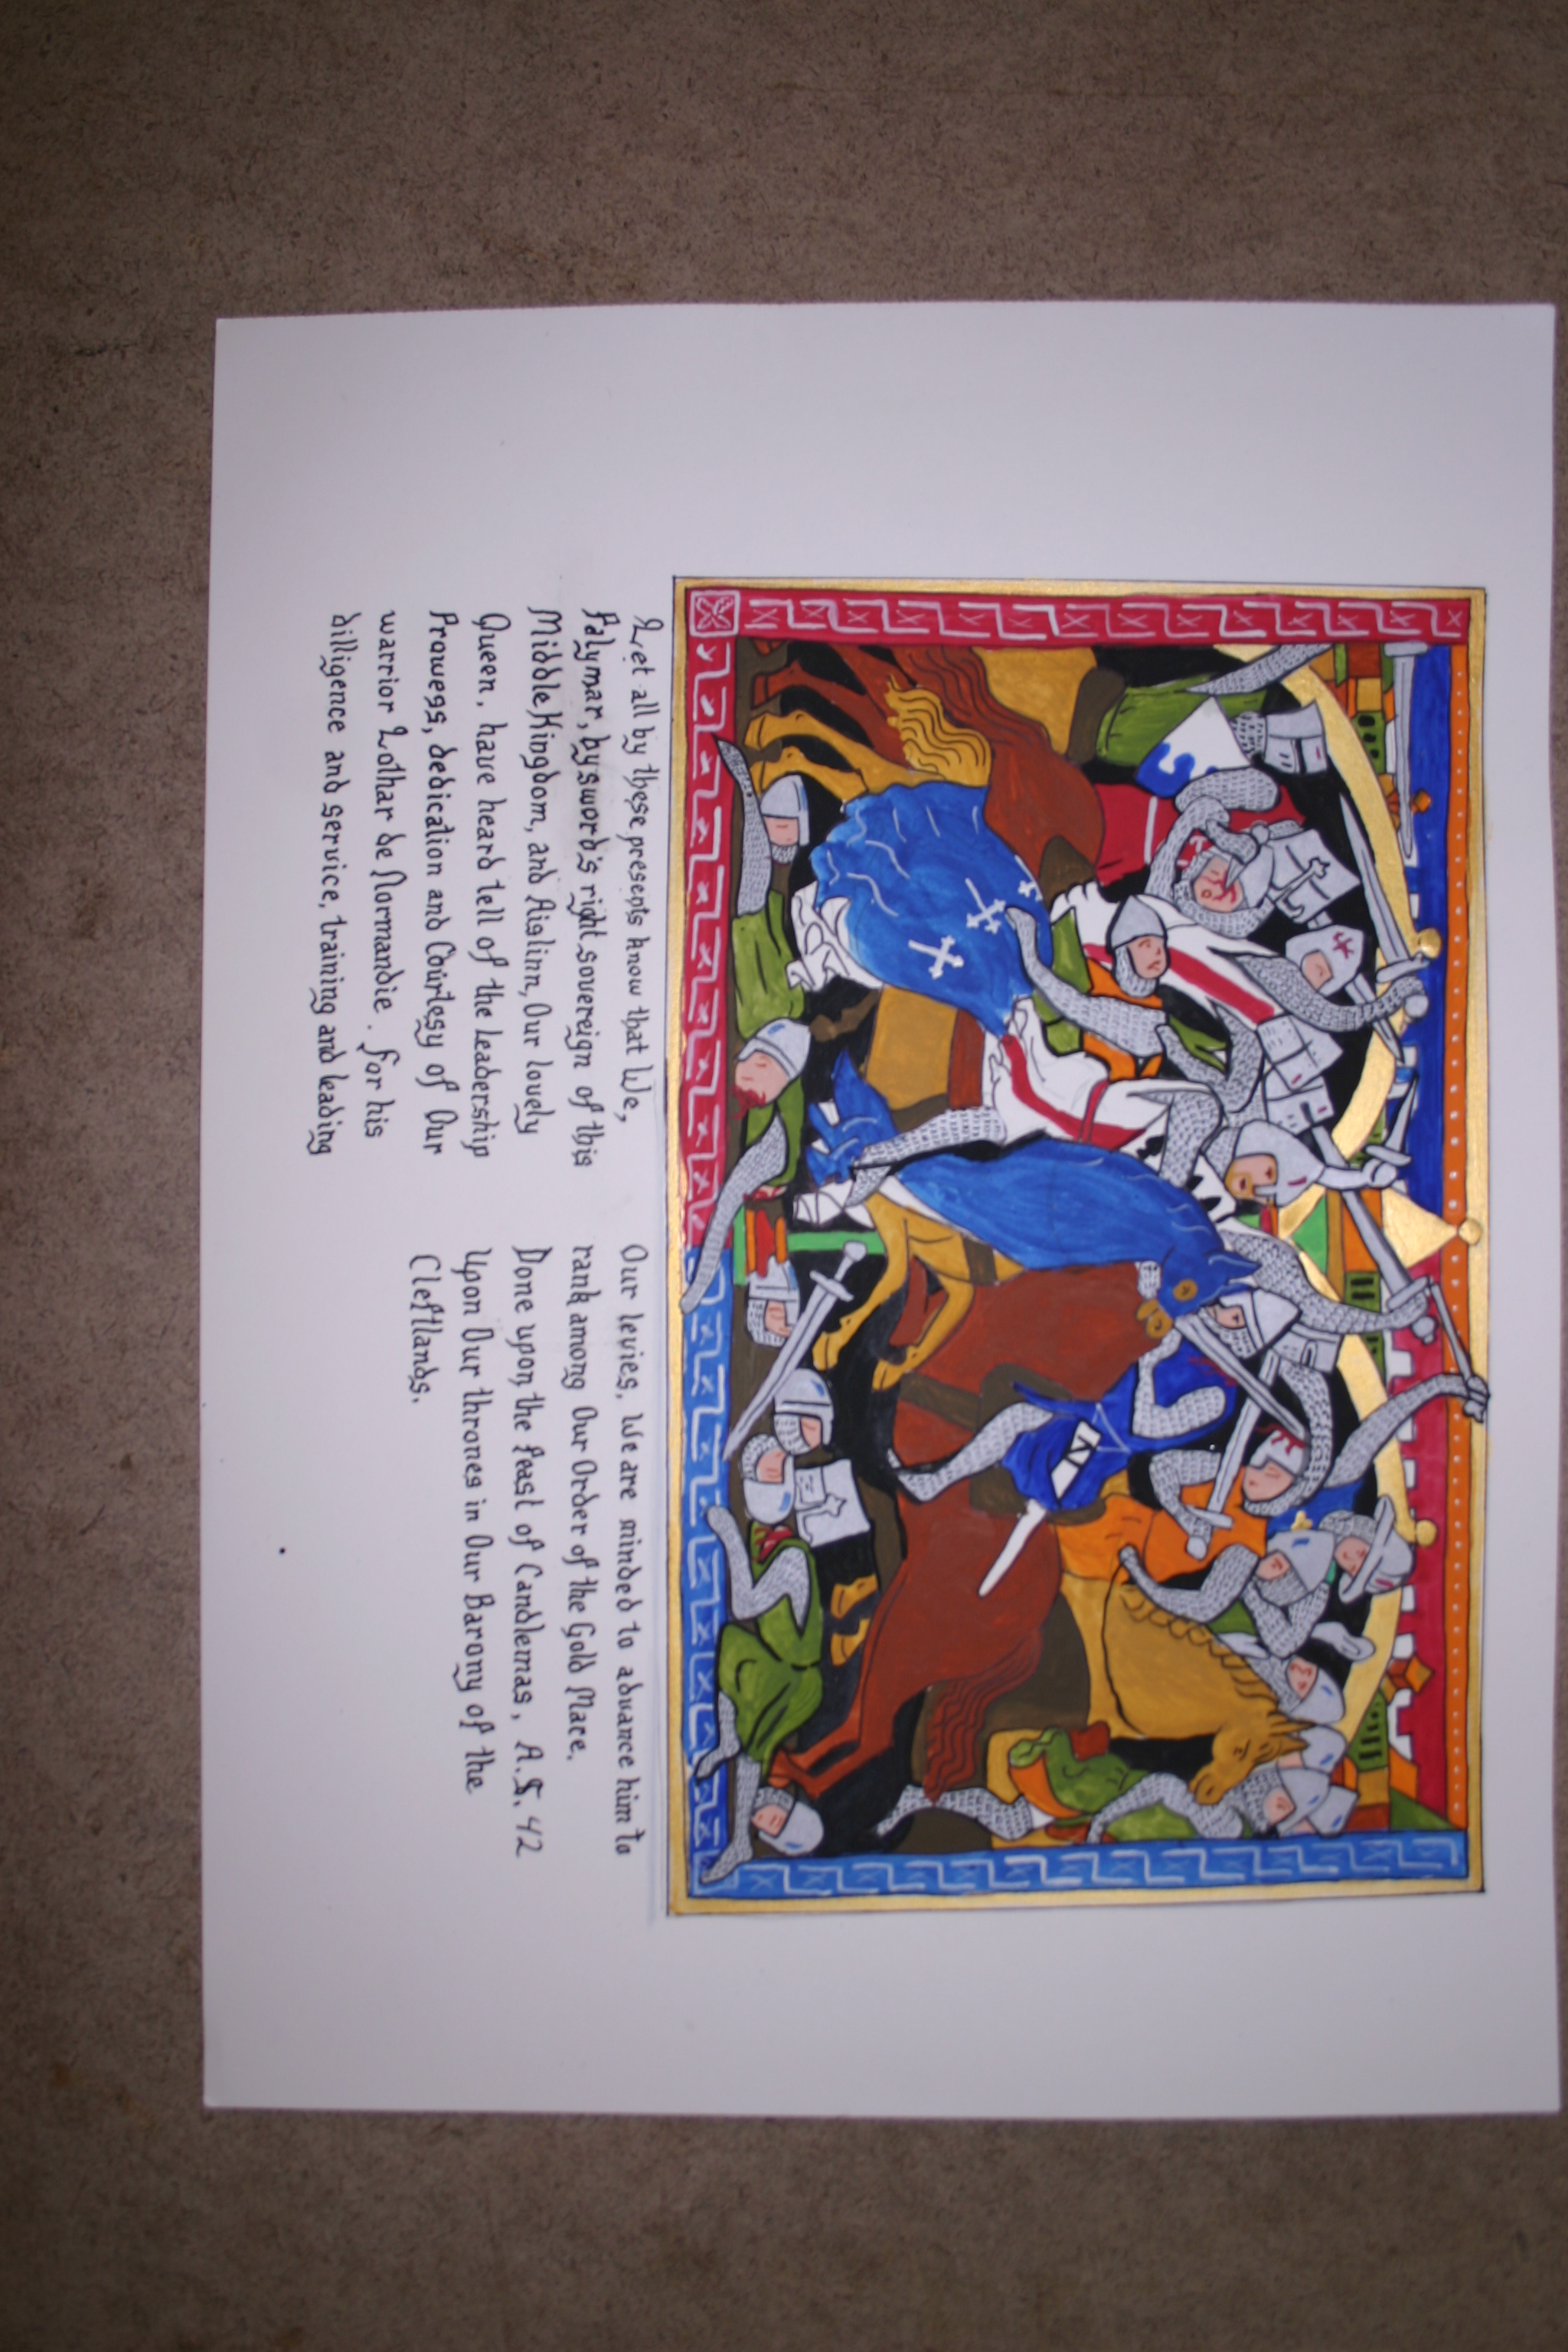 Let all by these presents know that We,
Palymar, by sword's right sovereign of this
Middle Kingdom, and Aislinn, Our lovely
Queen, have heard tell of the Leadership
Prowess, dedication and Courtesy of Our
warrior Lothar de Normandie. for his
dilligence and service, training and leading
Our levies. We are minded to advance him to
rank among Our Order of the Gold Mace.
Done upon the feast of Candlemas, A.S. 42
Upon Our thrones in Our Barony of the
Cleftlands.